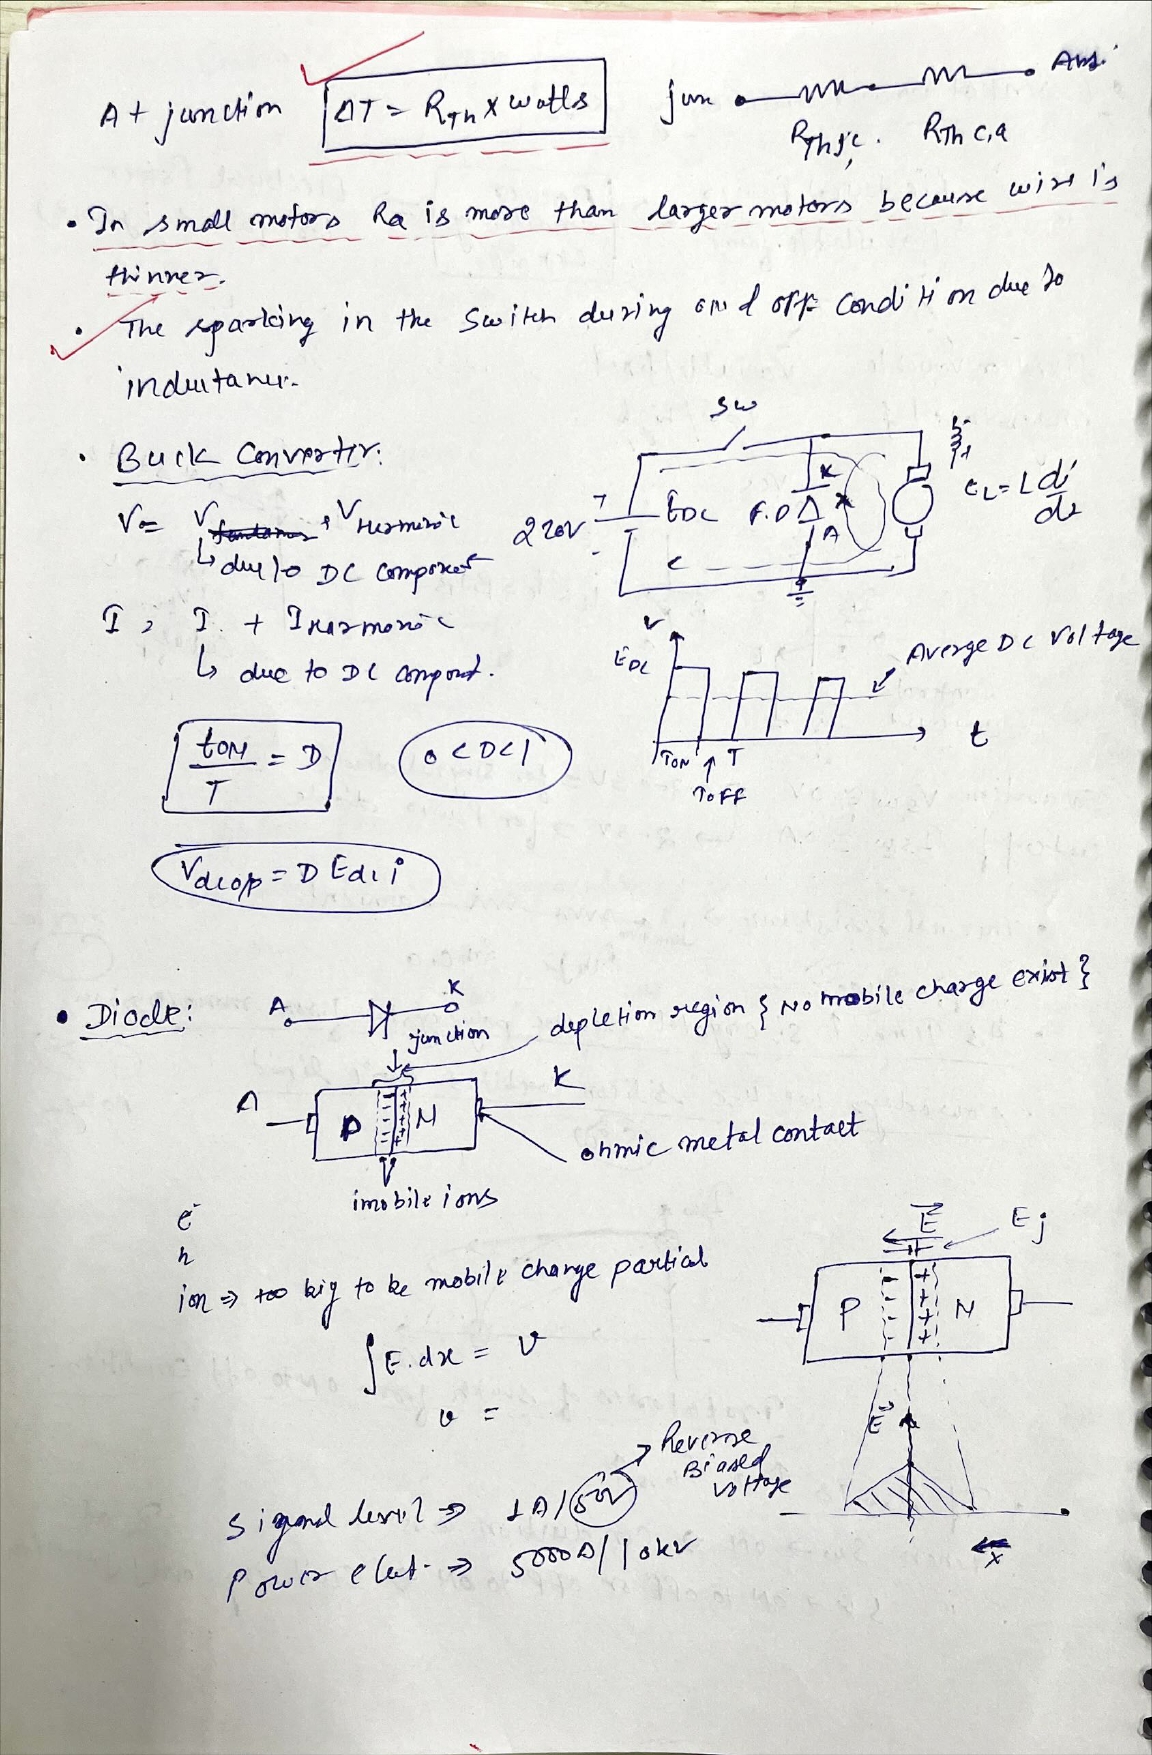 At junction ΔT = RTh x watts
jun Amb.
RThjc. RTh c,a
• In small motors Ra is more than larger motors because wire is
thinner.
• The sparking in the switch during on d off condition due to
inductance.
• Buck Converter:
SW
V = V + VHarmonic
↳ due to DC component
I = I. + IHarmonic
↳ due to DC compont.
220V
+
-
EDC
F.D
K
A
eL = L di/dt
V
EDC
Average DC Voltage
TON T
↑
TOFF
t
tON/T = D
0 < D < 1
Vdcop = D Edci
• Diode:
A K
junction
depletion region { No mobile charge exist }
A P N K
ohmic metal contact
imobile ions
e-
h
ion ⇒ too big to be mobile charge partical
∫E.dx = v
v =
E Ej
P N
E
x
Reverse
Biased
Voltage
Signal level ⇒ 1A/50V
Power elect. ⇒ 5000A/10kV